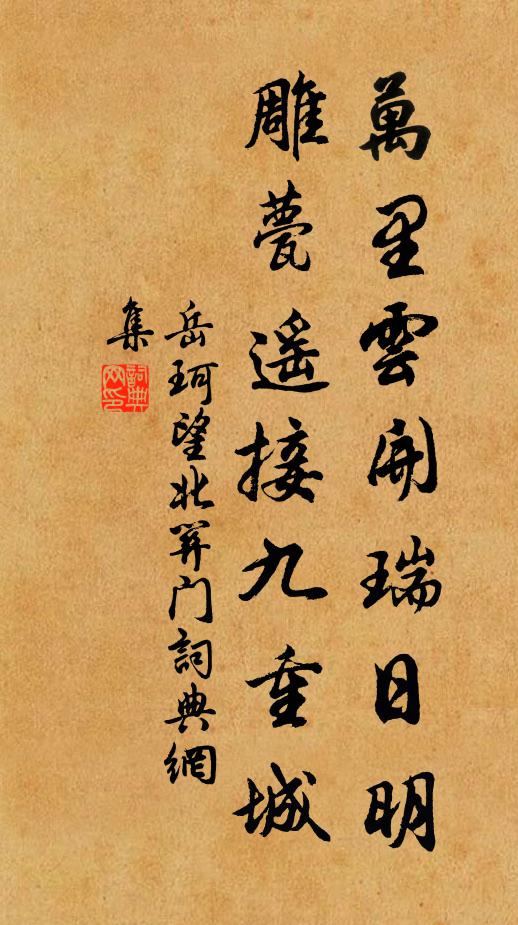 萬里雲開瑞日明
雕甍遥接九重城
岳珂望北關門詞典網
集
詞典
网印